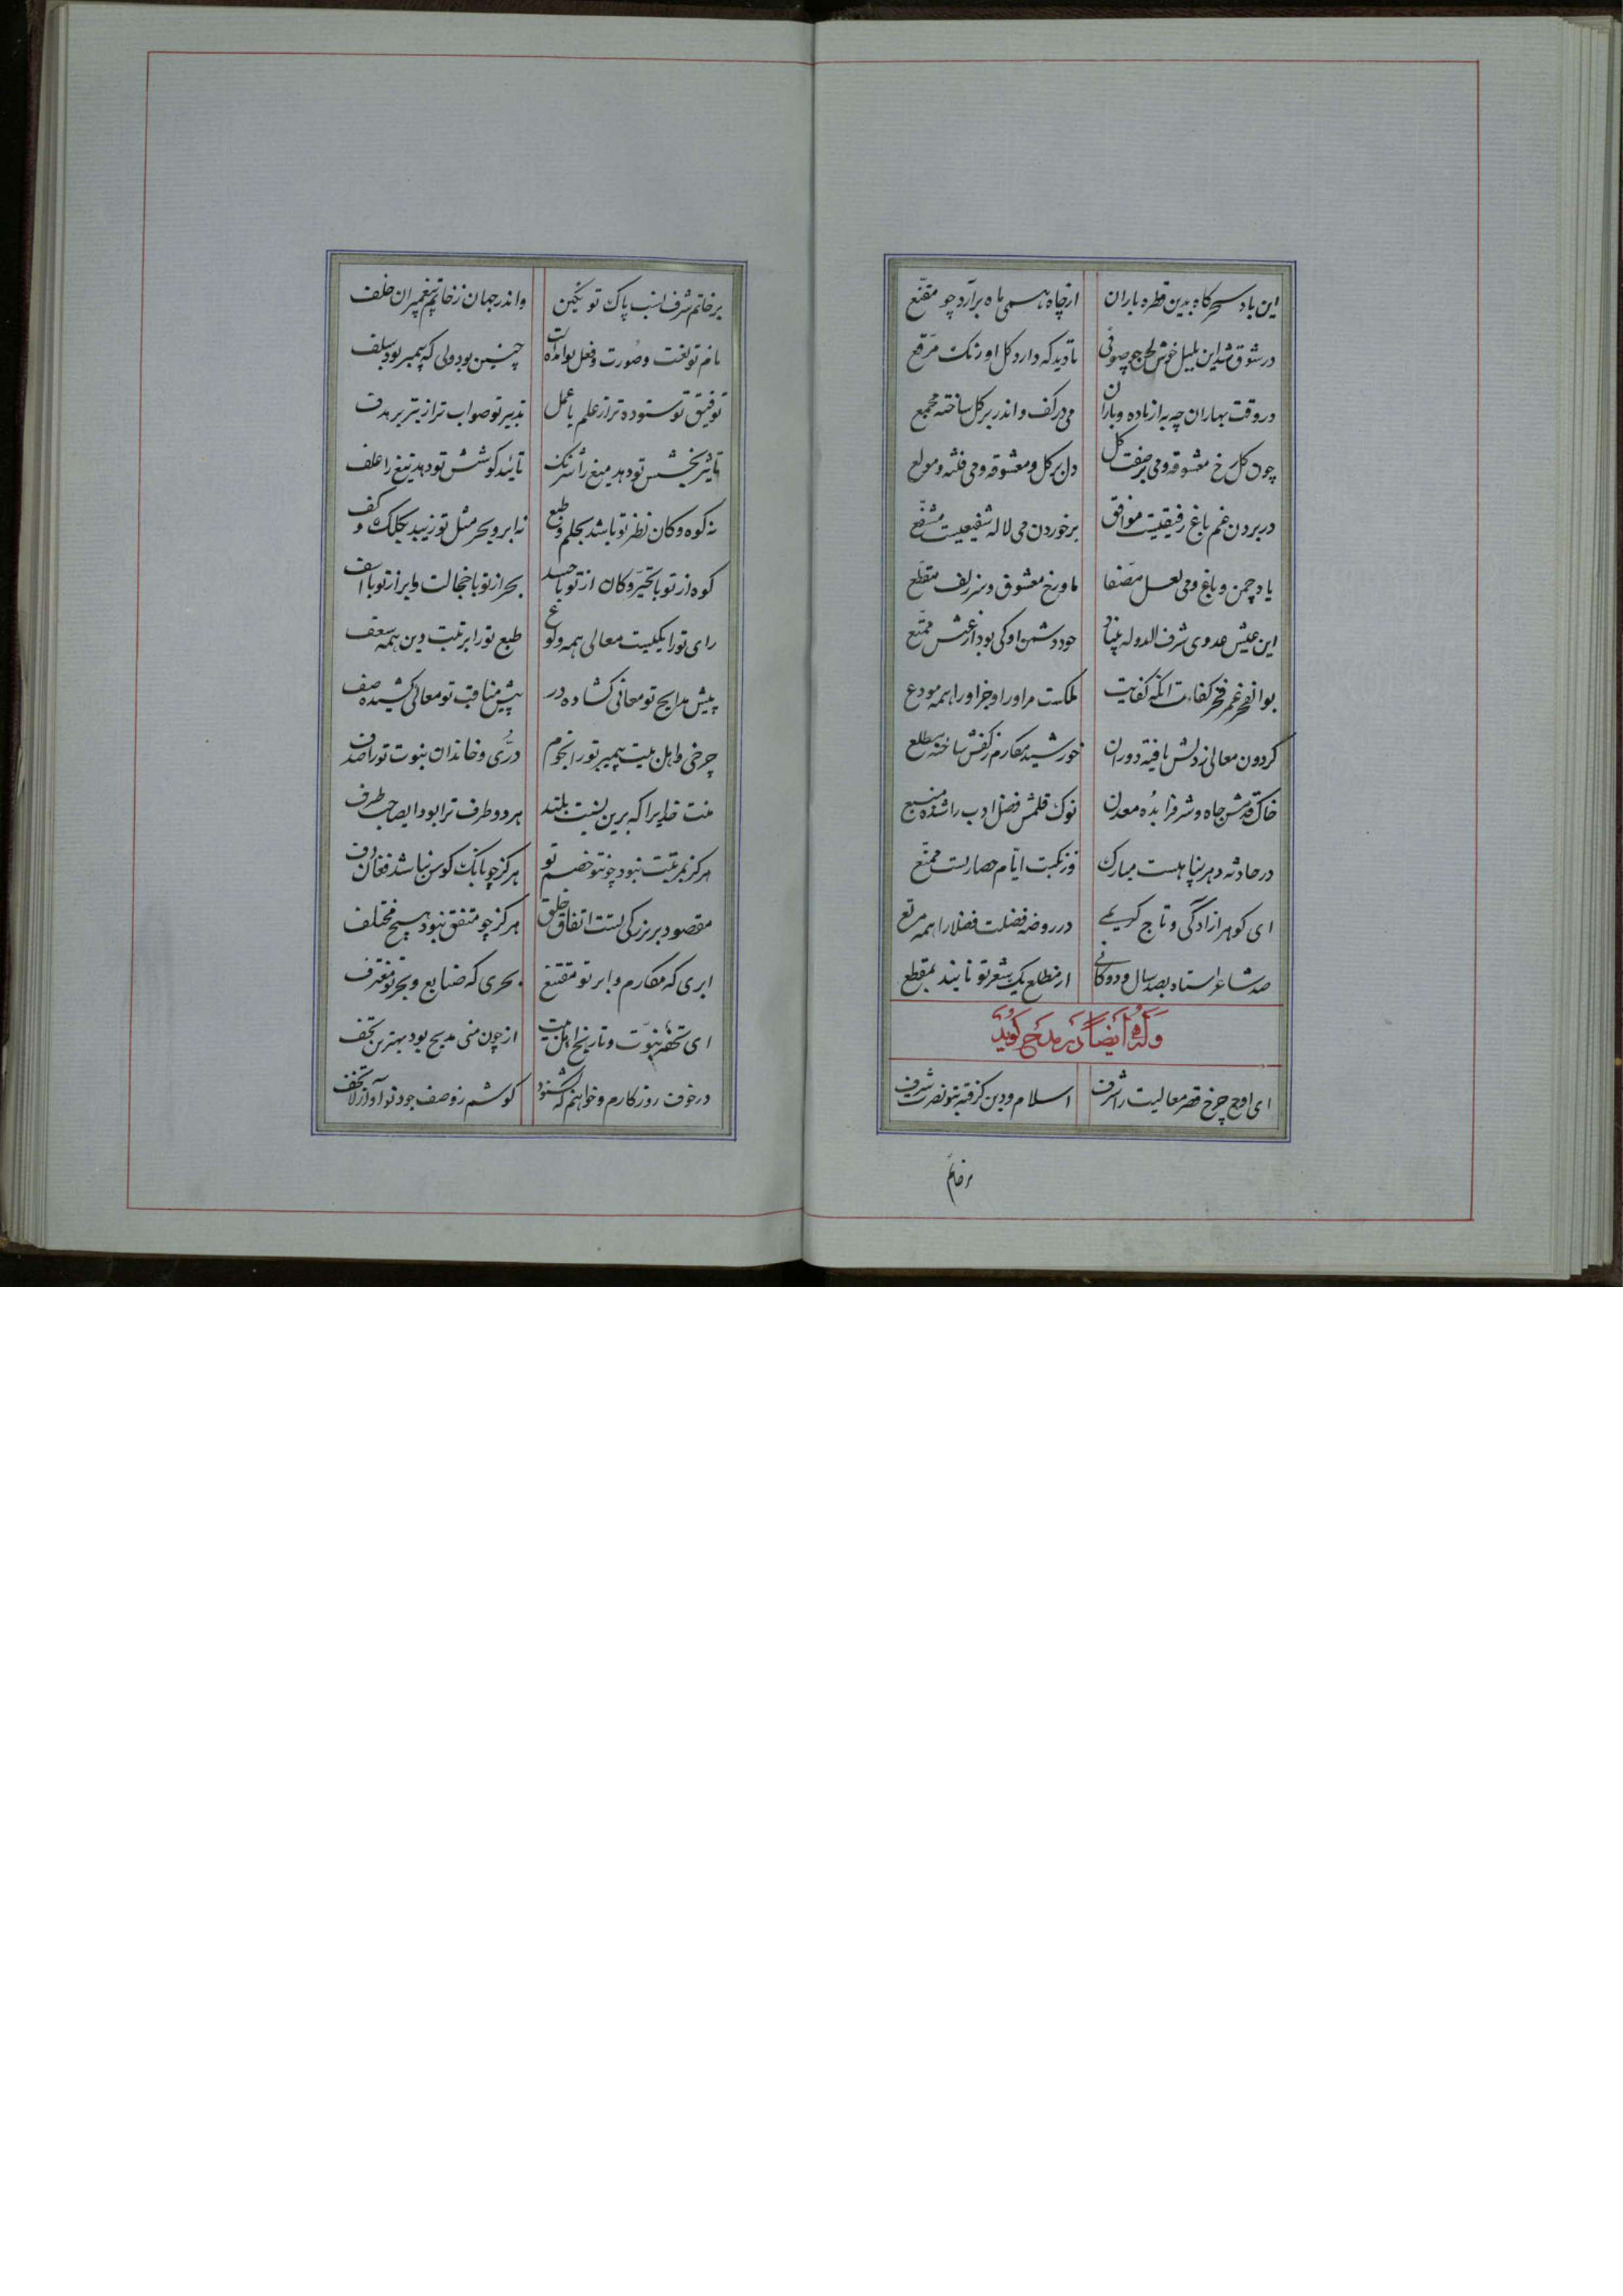 این باد سحرگاه بدین قطره باران از چاه همی ماه برآرد چو مقنع
در شوق شد این بلبل خوش لحن چو صوفی تا دید که دارد گل اورنک مرقع
در وقت بهاران چه به از باده و باران می در کف و اندر بر گل ساخته مجمع
چون گل رخ معشوقه و می بر صفت گل دل بر گل و معشوقه و می فتنه و مولع
در بردن غم باغ رفیقیست موافق بر خوردن می لاله شفیعیست مشفع
یاد چمن و باغ و می لعل مصفا ماه رخ معشوق و سر زلف مقطع
این عیش عدوی شرف الدوله بیناد خود دشمن او کی بود از عیش ممتع
بوالفخر عمر فخر کفاءت انکه کفایت ملکت مر او را و جز او را همه مودع
کردون معالی ز دلش یافته دوران خورشید مکارم ز کفش ساخته مطلع
خاک قدمش جاه و شرف را بده معدن نوک قلمش فضل و ادب را شده منبع
در حادثه دهر پناهیست مبارک وز نکبت ایام حصاریست ممنع
ای کوهر ازادگی و تاج کریمی در روضه فضلت فضلا را همه مرتع
صد شاعر استاد بصد سال و دوکانی از مطلع یک شعر تو نایند بمقطع
وله ایضاً در مدح کوید
ای اوج چرخ قصر معالیت را شرف اسلام و دین کرفته بتو نصرت و شرف
بر خاتم
بر خاتم شرف نسب پاک تو نکین واندر جهان ز خاتم پیغمبران خلف
نام تو نعت و صورت و فعل تو امدت چنین بود ولی که پیمبر بود سلف
توفیق تو ستوده تر از علم با عمل تدبیر تو صواب تر از تیر بر هدف
تاثیر بخشش تو دهد میغ را سرشک تائید کوشش تو دهد تیغ را علف
نه کوه و کان نظیر تو باشد بحلم و طبع نه ابر و بحر مثل تو زیبد بکلک و کف
کوه از تو با تحیر و کان از تو با حسد بحر از تو با خجالت و ابر از تو با اسف
رای تو را بکلیت معالی همه ولوع طبع تو را برتبت دین همه سعف
پیش مدایح تو معانی کشاده در پیش مناقب تو معالی کشیده صف
چرخی و اهل بیت پیمبر تو را نجوم درّی و خاندان نبوت تو را صدف
منت خدایرا که برین نسبت بلند هر دو طرف ترا بود ای صاحب طرف
هرکز بمرتبت نبود چو تو خصم تو هرکز چو بانک کوس نباشد فغان دف
مقصود بر بزرکی تست اتفاق خلق هرکز چو متفق نبود هیچ مختلف
ابری که مکارم و ابر تو مقتنع بحری که صنایع و بحر تو مغترف
ای تحفه نبوت و تاریخ اهل بیت از چون منی مدیح بود بهترین تحف
در خوف روزکارم و خواهم که بشنود کوشم ز وصف جود تو آواز لا تخف